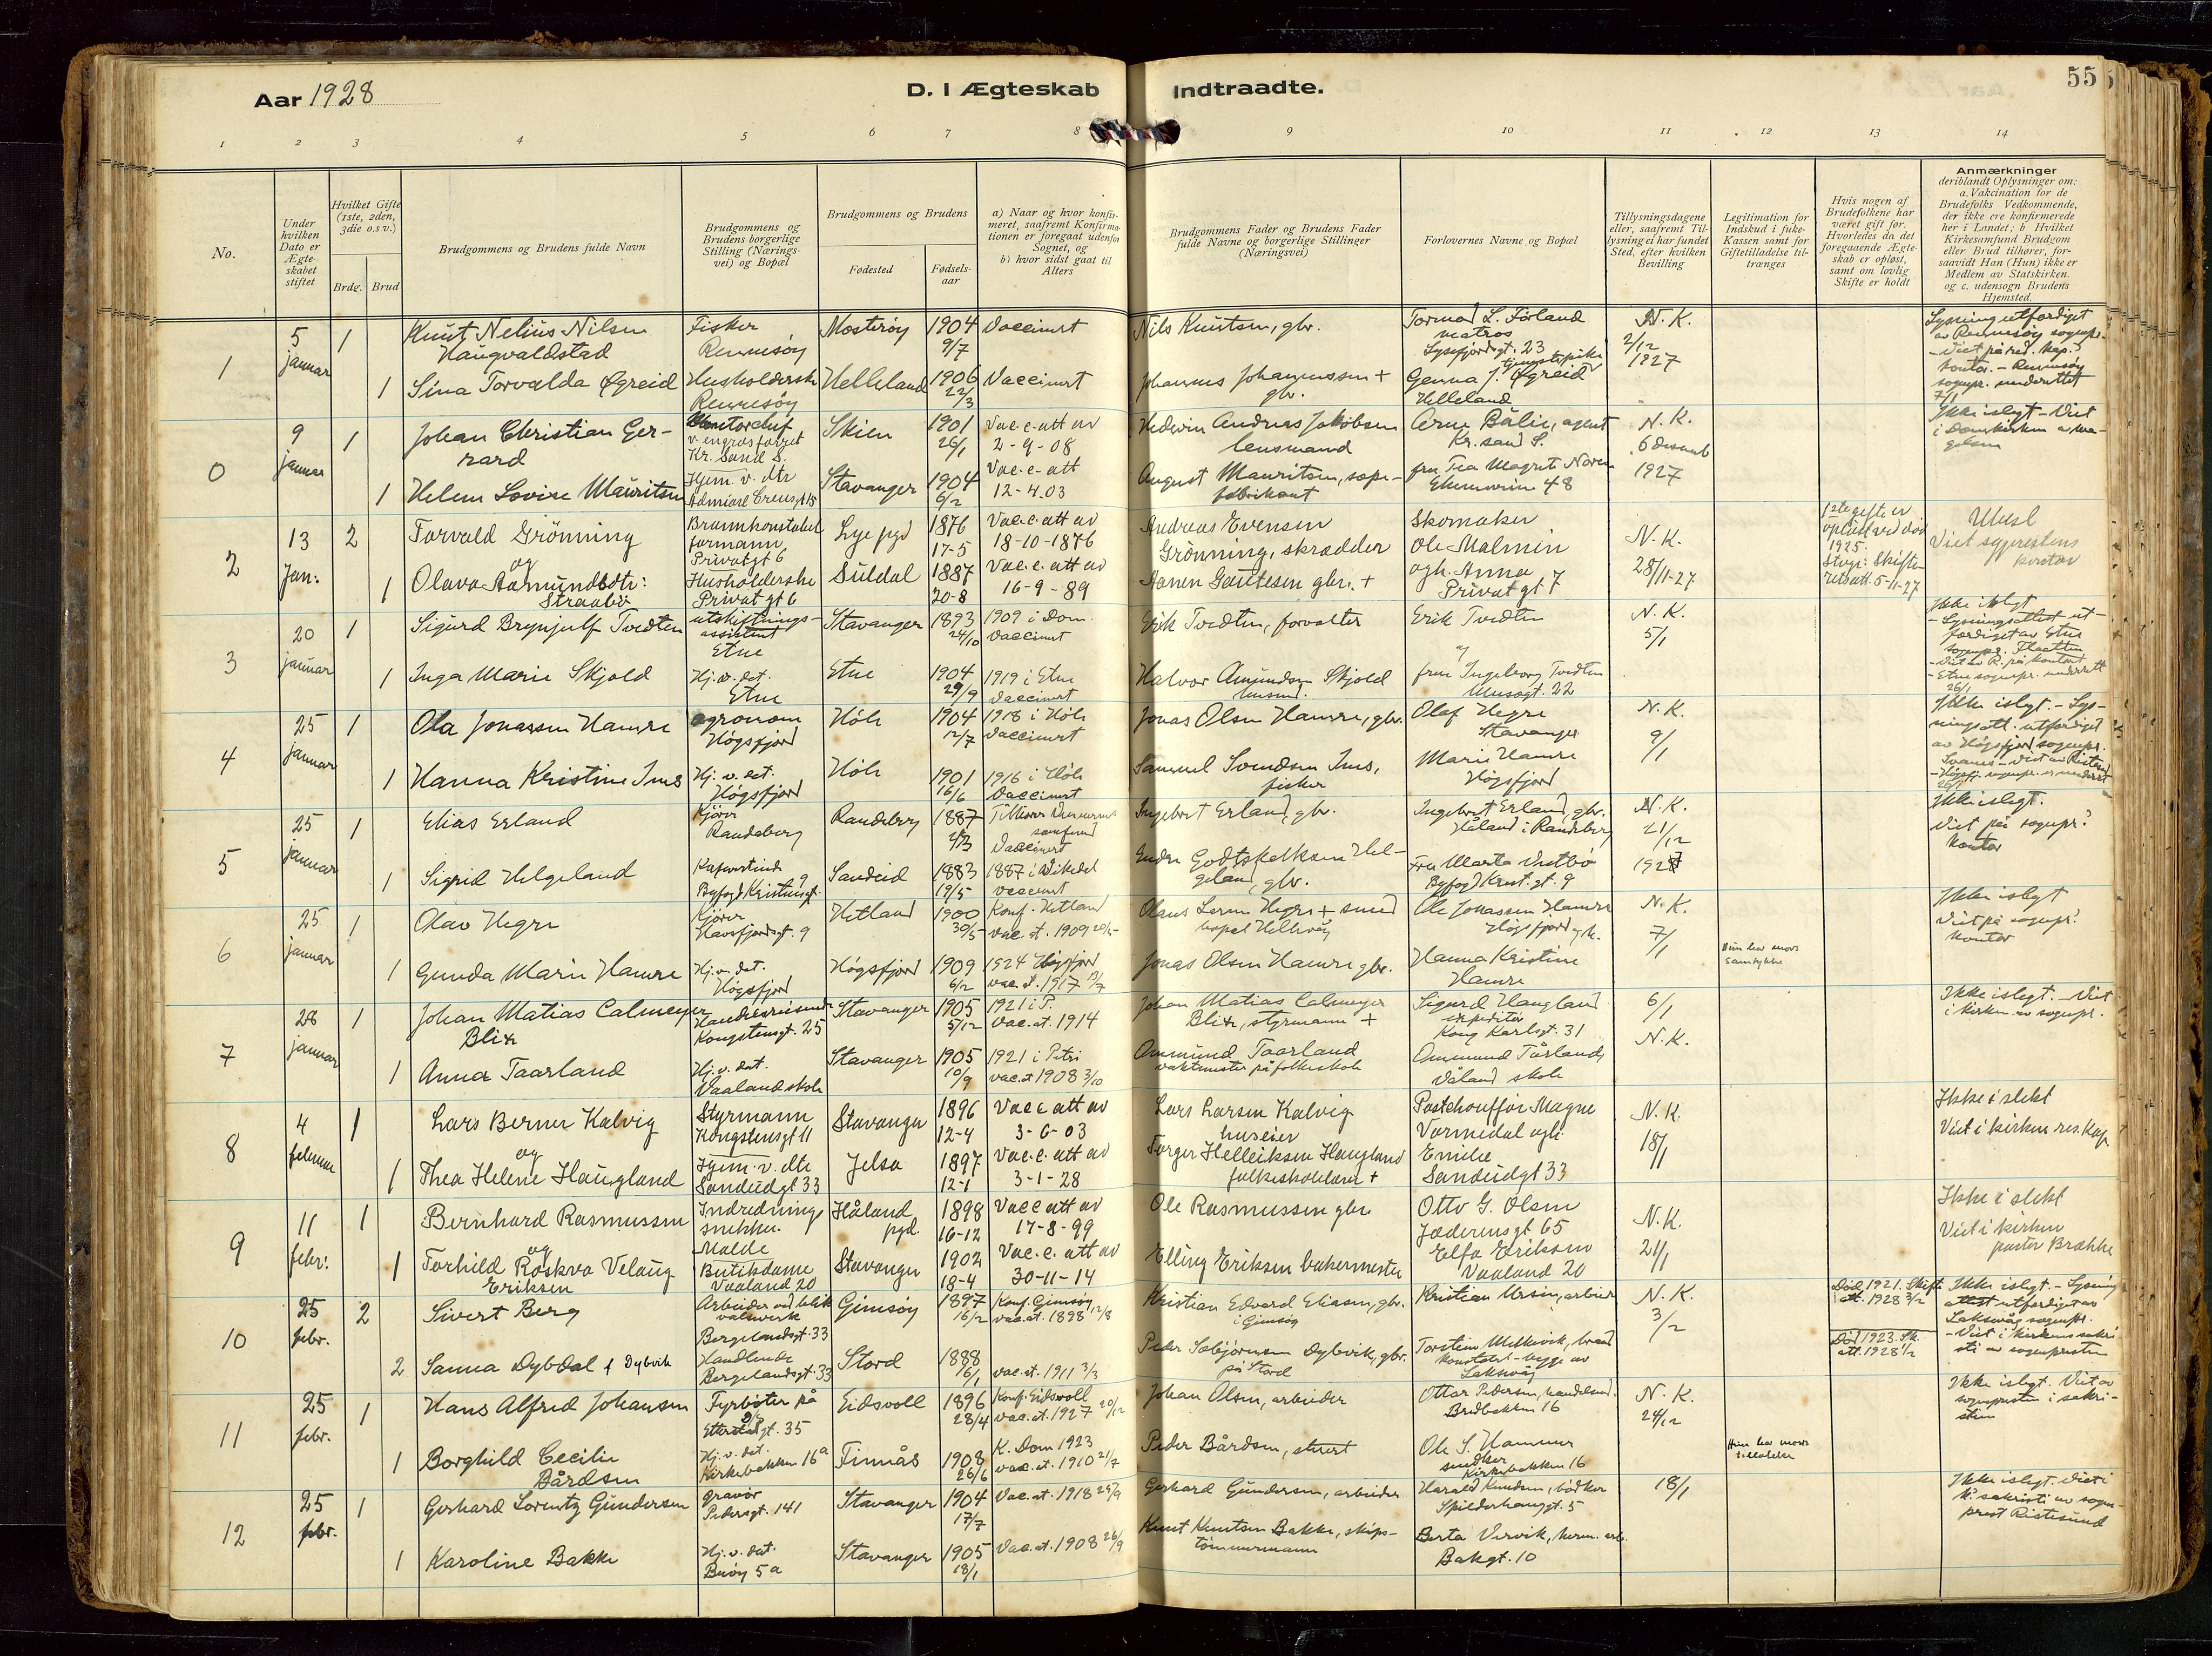 Aar 1928
D. I Ægteskab Indtraadte.
55
1 2 3 4 5 6 7 8 9 10 11 12 13 14
No.
Under hvilken Dato er Ægteskabet stiftet
Hvilket Gifte (1ste, 2den, 3die o.s.v.)
Brdg. Brud
Brudgommens og Brudens fulde Navn
Brudgommens og Brudens borgerlige Stilling (Næringsvei) og Bopæl
Brudgommens og Brudens
Fødested
Fødselsaar
a) Naar og hvor konfirmeret, saafremt Konfirmationen er foregaat udenfor Sognet, og
b) hvor sidst gaat til Alters
Brudgommens Fader og Brudens Fader fulde Navne og borgerlige Stillinger (Næringsvei)
Forlovernes Navne og Bopæl
Tillysningsdagene eller, saafremt Tillysning ei har fundet Sted, efter hvilken Bevilling
Legitimation for Indskud i fuke-Kassen samt for Giftetilladelse tiltrænges
Hvis nogen af Brudefolkene har været gift før. Hvorledes da det foregaaende Ægteskab er opløst, samt om lovlig Skifte er holdt
Anmærkninger
deriblandt Oplysninger om: a. Vakcination for de Brudefolks Vedkommende, der ikke ere konfirmerede her i Landet; b Hvilket Kirkesamfund Brudgom eller Brud tilhører, forsaavidt Han (Hun) ikke er Medlem av Statskirken. og c. udensogn Brudens Hjemsted.
1
5 januar
1
Knut Nelius Nilsen
Haugvaldstad
Fisker
Rennesøy
Mosterøy
1904
9/7
Vaccinert
Nils Knutsen, gbr.
Tormod L. Förland
matros
Lysefjordsgt. 23
N. K.
2/12
1927
Lysning utferdiget
av Rennesøy sogepr.
- Viet på res. kap.s
kontor. - Rennesøy
sogepr. underrettet
7/1
1
Sina Torvalda Øgreid
Husholderske
Rennesøy
Helleland
1906
22/3
Vaccinert
Johannes Johannessen +
gbr.
Genna J. Øgreid
Helleland
0
9 januar
1
Johan Christian Gerrard
Kontorchef
v. engrosforret
Kr. Sand S.
Skien
1901
26/1
Vac.c. att av
2-9-08
Hedevin Andreas Jakobsen
lensmand
Arne Bålie, agent
Kr. sand S.
N. K.
6 desemb
1927
Ikke i slegt - Viet
i Domkirken
1
Helene Lovise Mauritsen
Hjem. v. dtr
Stavanger
1904
6/2
Vac.c. att
12-4.03
August Mauritsen, sæpefabrikant
2
13 Jan.
2
Torvald Grönning
og
Brannkonstabel
formann
Privatgt 6
Lye pgd
1876
17-5
Vac.c. att av
18-10-1876
Andreas Evensen
Grönning, skrædder
Skomaker
Ole Malmin
ogh. Anna
Privatgt 7
N. K.
28/11-27
1ste gifte er
opløst ved død
1925.
Stvgr. Skifterets att. 5-11-27
Ubesl
Viet sogprestens
kontor
1
Olava Aamundsdtr:
Straabö
Husholderske
Privatgt 6
Suldal
1887
20-8
Vac.c. att av
16-9-89
Aanen Gautesen gbr. +
3
20 januar
1
Sigurd Brynjulf Tvedten
utskiftningsassistent
Etne
Stavanger
1893
24/10
1909 i Dom.
Vaccinert
Erik Tvedten, forvalter
Erik Tvedten
N. K.
5/1
Ikke i slegt
- Lysningsattest utferdiget av Etne
sogepr.
- Etne sogepr. underrett
26/1
1
Inga Marie Skjold
Hj. v. det.
Etne
Etne
1904
29/9
1919 i Etne
Vaccinert
Halvor Amundsen Skjold
lensmd.
fru Ingeborg Tvedten
22
4
25 januar
1
Ola Jonassen Hamre
agronom
Högsfjord
Höle
1904
12/7
1918 i Höle
Vaccinert
Jonas Olsen Hamre, gbr.
Olaf Hegre
Stavanger
N. K.
9/1
Ikke i slegt. - Lysningsatt. utferdiget
av Högsfjord sogepr.
1
Hanna Kristine Ims
Hj. v. det.
Högsfjord
Höle
1901
16/6
1916 i Höle
Vaccinert
Samuel Svendsen Ims,
fisker
Marie Hamre
Högsfjord
5
25 januar
1
Elias Erland
Kjörer
Randaberg
Randeberg
1887
Vaccinert
Ingebret Erland, gbr.
Ingebret Erland, gbr.
Håland i Randeberg
N. K.
21/12
1927
Ikke i slegt.
Viet på sogepr.s
kontor
1
Sigrid Helgeland
Sandeid
1883
19/5
1887 i Vikedal
vaccinert
Endre Godtskalksen Helgeland, gbr.
Fru Marta Vestbö
Byfogd Krist. gt. 9
6
25 januar
1
Olav Hegre
Kjörer
Havsfjordsgt. 9
Hetland
1900
30/5
Konf. Hetland
vac. at. 1909
Olaus Hegre + smed
bopel Hillevåg
Ole Jonassen Hamre
Högsfjord
N. K.
7/1
Ikke i slegt
Viet på sogepr.s
kontor
1
Gunda Marie Hamre
Hj. v. det.
Högsfjord
Högsfjord
1909
6/2
1924 Högsfjord
vac. at. 1917
Jonas Olsen Hamre gbr.
Hanna Kristine
Hamre
Hun har mors
samtykke
7
28 januar
1
Johan Matias Calmeyer
Blix
Handelsreisende
Kongstensgt. 25
Stavanger
1905
5/12
1921 i P.
Vac. at. 1914
Johan Matias Calmeyer
Blix, styrmann +
Sigurd Haugland
ekspeditör
Kong Karlsgt. 31
6/1
N. K.
Ikke i slegt. - Viet
i kirken av sogepr.
1
Anna Taarland
Hj. v. det.
Vaaland skole
Stavanger
1905
10/9
1921 i Petri
vac. at 1908 3/10
Ommund Taarland
vaktmester på folkeskole
Ommund Tårland,
Våland skole
8
4 februar
1
Lars Berner Kalvig
og
Styrmann
Kongstensgt 11
Stavanger
1896
12-4
Vac c att av
3-6-03
Lars Larsen Kalvig
huseier
Postchouffør Magne
Vormedal ogh.
Emilie
Sandeidgt 33
N. K.
18/1
Ikke i slekt
Viet i kirken res. kap.
1
Thea Helene Haugland
Hjem. v. dtr
Sandeidgt 33
Jelsa
1897
12-1
Vac.c. att av
3-1-28
Torger Helleiksen Haugland
folkeskolelærer +
9
11 febr:
1
Bernhard Rasmussen
og
Indrednings
snekker.
Malde
Håland
pgd.
1898
16-12
Vac c att av
17-8-99
Ole Rasmussen gbr.
Otto G. Olsen
Jæderensgt 65
Elfa Eriksen
Vaaland 20
N. K.
21/1
Ikke i slekt
Viet i kirken
pastor Brække
1
Torhild Röskva Velaug
Eriksen
Butikdame
Vaaland 20
Stavanger
1902
18-4
Vac.c. att av
30-11-14
Elling Eriksen bakermester
10
25 febr.
2
Sivert Berg
Arbeider ved blikvalseverk
Bergelandsgt. 33
Gimsöy
1897
16/2
Konf. Gimsöy
vac. at. 1898 12/8
Kristian Edvard Eliasen, gbr.
i Gimsöy
Kristian Ursin, arbeider
N. K.
3/2
Död 1921. Skifte
att. 1928 3/2
Ikke i slegt. - Lysning
attest utferdiget av
Laksvåg sogepr.
- Viet i kirkens sakristi av sogepresten
2
Sanna Dybdal f Dybvik
Handlende
Bergelandsgt. 33
Stord
1888
6/1
vac. at. 1911 3/3
Peder Sæbjörnsen Dybvik, gbr.
på Stord
Torstein Melkevik, brandkonstabel
Laksvåg
Död 1923. Sk.
att. 1928 1/2
11
25 febr.
1
Hans Alfred Johansen
Fyrböter på
35
Eidsvoll
1896
28/4
Konf. Eidsvoll
vac. at. 1927 20/12
Johan Olsen, arbeider
Ottar Pedersen, handelsmd.
Bredbakken 16
N. K.
24/12
Ikke i slegt. Viet av
sogepresten i sakristien
1
Borghild Cecilie
Bårdsen
Hj. v. det.
Kirkebakken 16a
Finnås
1908
26/6
K. Dom 1923
vac. at. 1910 21/7
Peder Bårdsen, stuert
Ole S. Hammer
snedker
Kirkebakken 16
Hun har mors
tilladelse
12
25 febr.
1
Gerhard Lorentz Gundersen
Gravör
Pedersgt. 141
Stavanger
1904
17/7
Vac. at. 1918 25/9
Gerhard Gundersen, arbeider
Harald Knudsen, bödker
Spilderhauggt. 5
18/1
Ikke i slegt. Viet i
k. sakristi av sogeprest Ristesund
1
Karoline Bakke
Hj. v. det.
Buöy 5a
Stavanger
1905
18/1
Vac. at. 1908 26/9
Knut Knutsen Bakke, skipstömmermann
Berta Vervik, herm. arb.
Bakgt. 10